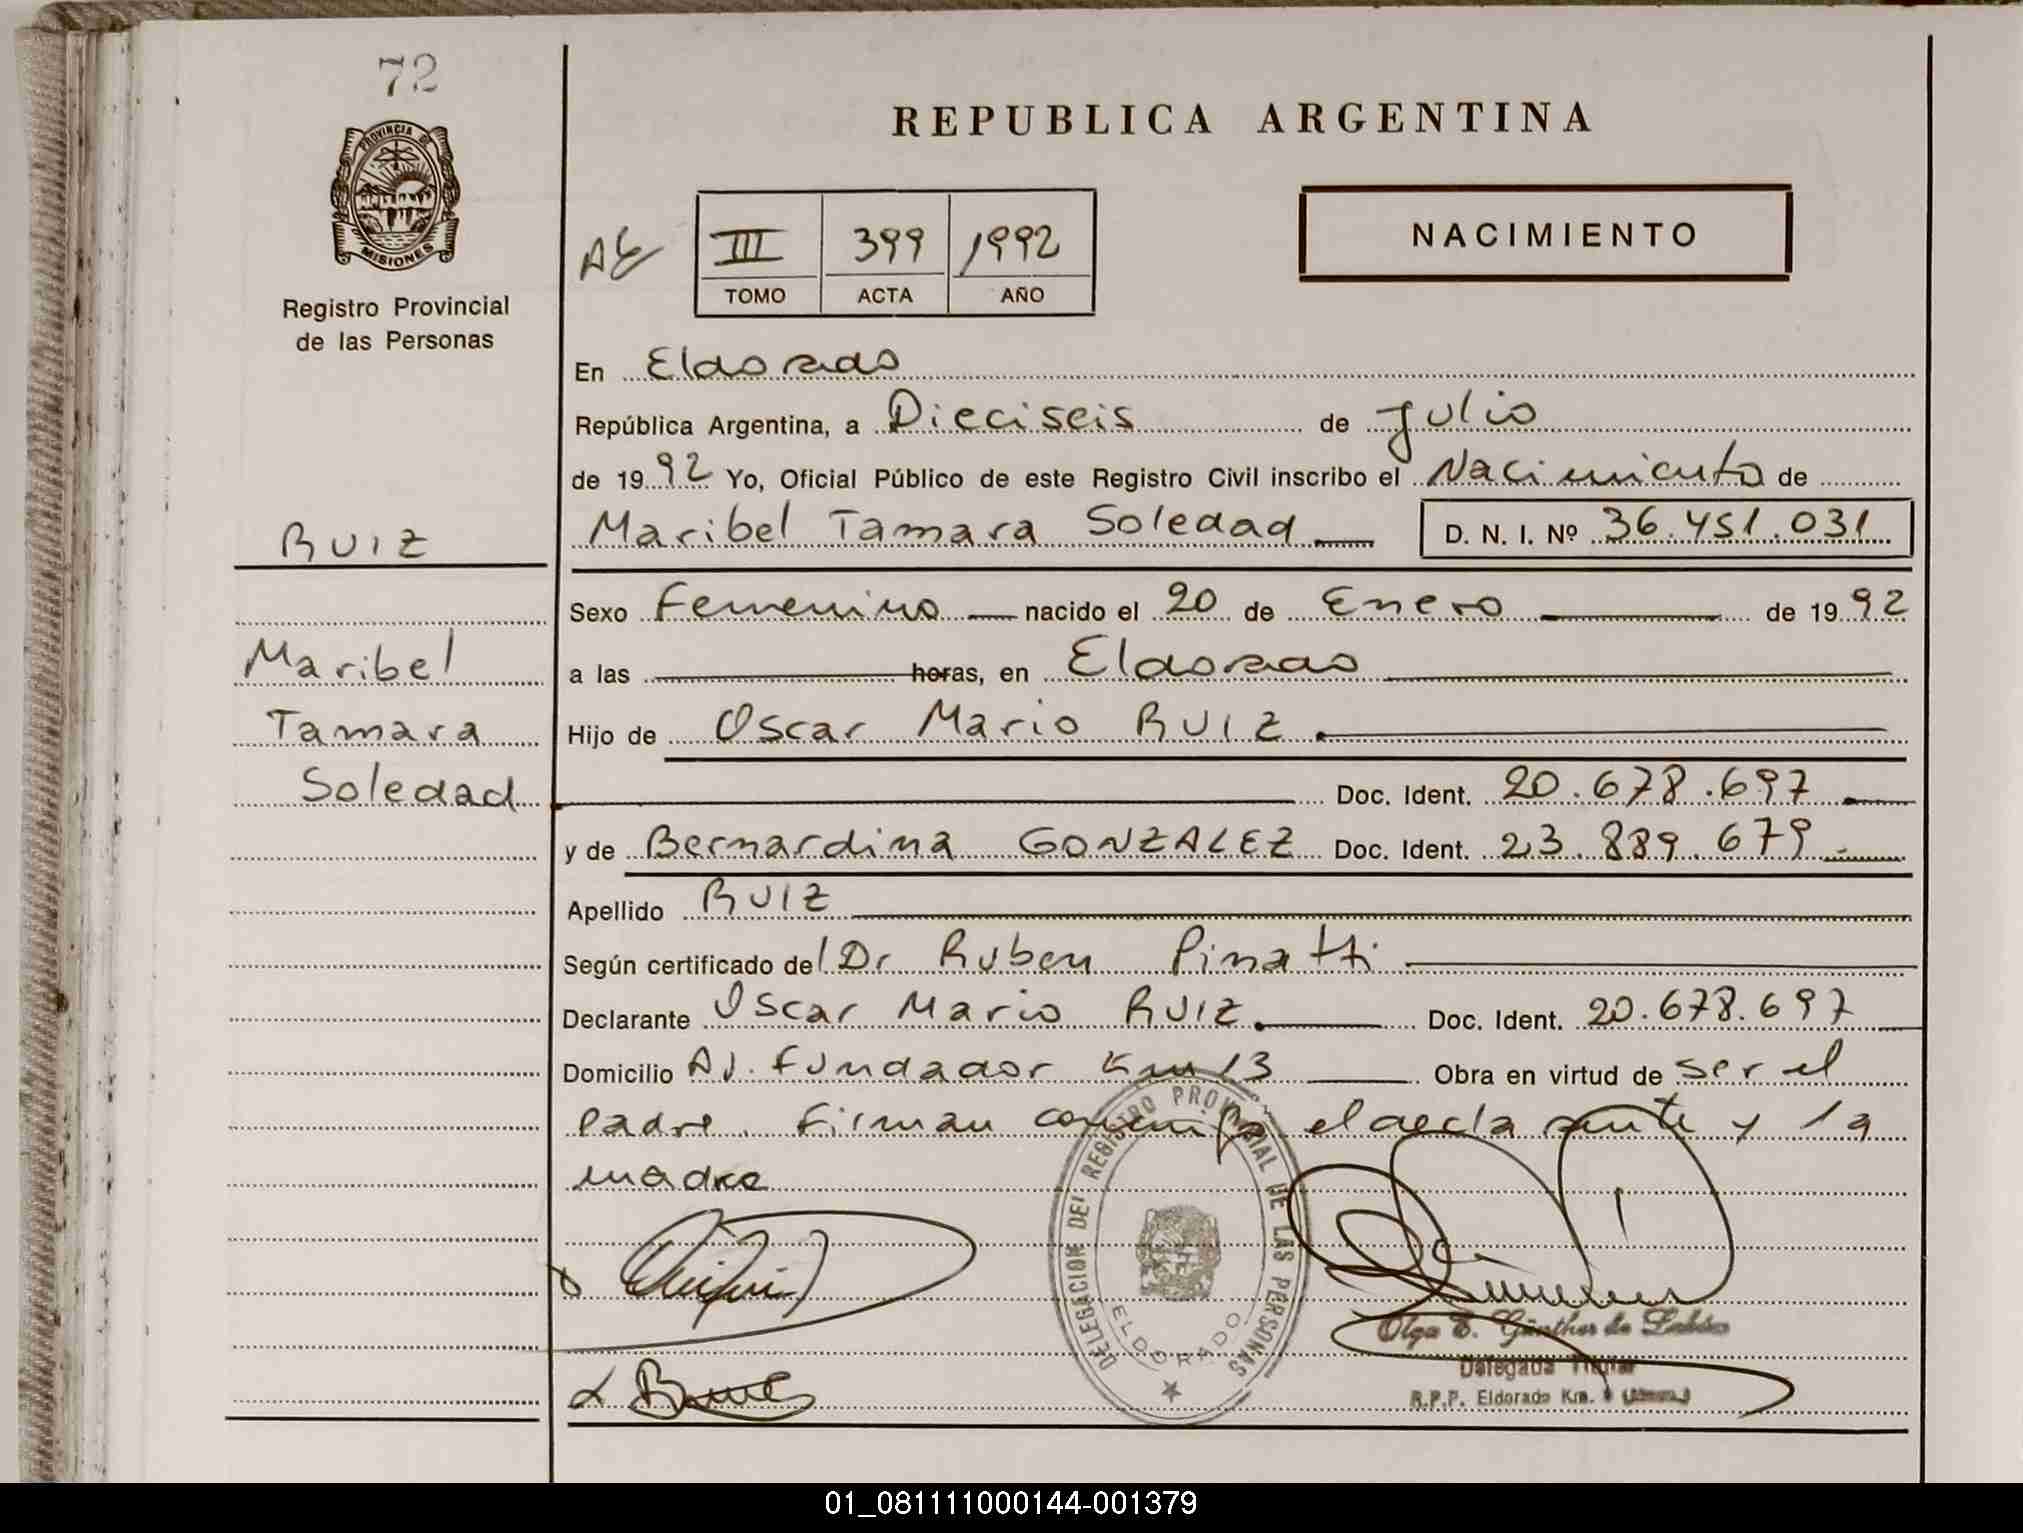 72
PROVINCIA DE
MISIONES
Registro Provincial
de las Personas
RUIZ
Maribel
Tamara
Soledad
REPUBLICA ARGENTINA
III 399 1992
TOMO ACTA AÑO
NACIMIENTO
En Eldorado
República Argentina, a Dieciseis de Julio
de 1992 Yo, Oficial Público de este Registro Civil inscribo el Nacimiento de
Maribel Tamara Soledad D. N. I. Nº 36.451.031
Sexo Femenino nacido el 20 de Enero de 1992
a las horas, en Eldorado
Hijo de Oscar Mario RUIZ
Doc. Ident. 20.678.697
y de Bernardina GONZALEZ Doc. Ident. 23.889.679
Apellido RUIZ
Según certificado del Dr Ruben Pinatti
Declarante Oscar Mario RUIZ Doc. Ident. 20.678.697
Domicilio Av. Fundador Km 13 Obra en virtud de ser el
padre. Firman conmigo el declarante y la
madre
DELEGACION DEL REGISTRO PROVINCIAL DE LAS PERSONAS
ELDORADO
Olga E. Günther de
Delegada Titular
R.P.P. Eldorado Km.
01_081111000144-001379